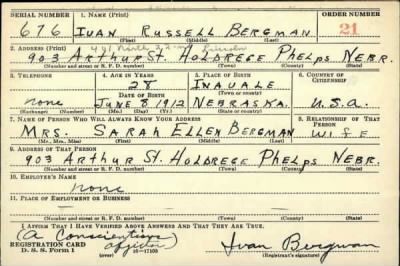 SERIAL NUMBER 1. NAME (Print) ORDER NUMBER
676 IVAN RUSSELL BERGMAN 21
(First) (Middle) (Last)
2. ADDRESS (Print)
903 ARTHUR ST. HOLDREGE PHELPS NEBR.
(Number and street or R. F. D. number) (Town) (County) (State)
3. TELEPHONE 4. AGE IN YEARS 5. PLACE OF BIRTH 6. COUNTRY OF CITIZENSHIP
28 INAVALE
DATE OF BIRTH (Town or county)
none JUNE 8 1912 NEBRASKA. U.S.A.
(Mo.) (Day) (Yr.) (State or country)
7. NAME OF PERSON WHO WILL ALWAYS KNOW YOUR ADDRESS 8. RELATIONSHIP OF THAT PERSON
MRS. SARAH ELLEN BERGMAN WIFE
(Mr., Mrs., Miss) (First) (Middle) (Last)
9. ADDRESS OF THAT PERSON
903 Arthur St. HOLDREGE PHELPS NEBR.
(Number and street or R. F. D. number) (Town) (County) (State)
10. EMPLOYER'S NAME
none
11. PLACE OF EMPLOYMENT OR BUSINESS
(Number and street or R. F. D. number) (Town) (County) (State)
I AFFIRM THAT I HAVE VERIFIED ABOVE ANSWERS AND THAT THEY ARE TRUE.
(A Conscientious
objector)
REGISTRATION CARD
D. S. S. Form 1 16—17105 Ivan Bergman
(Registrant's signature)